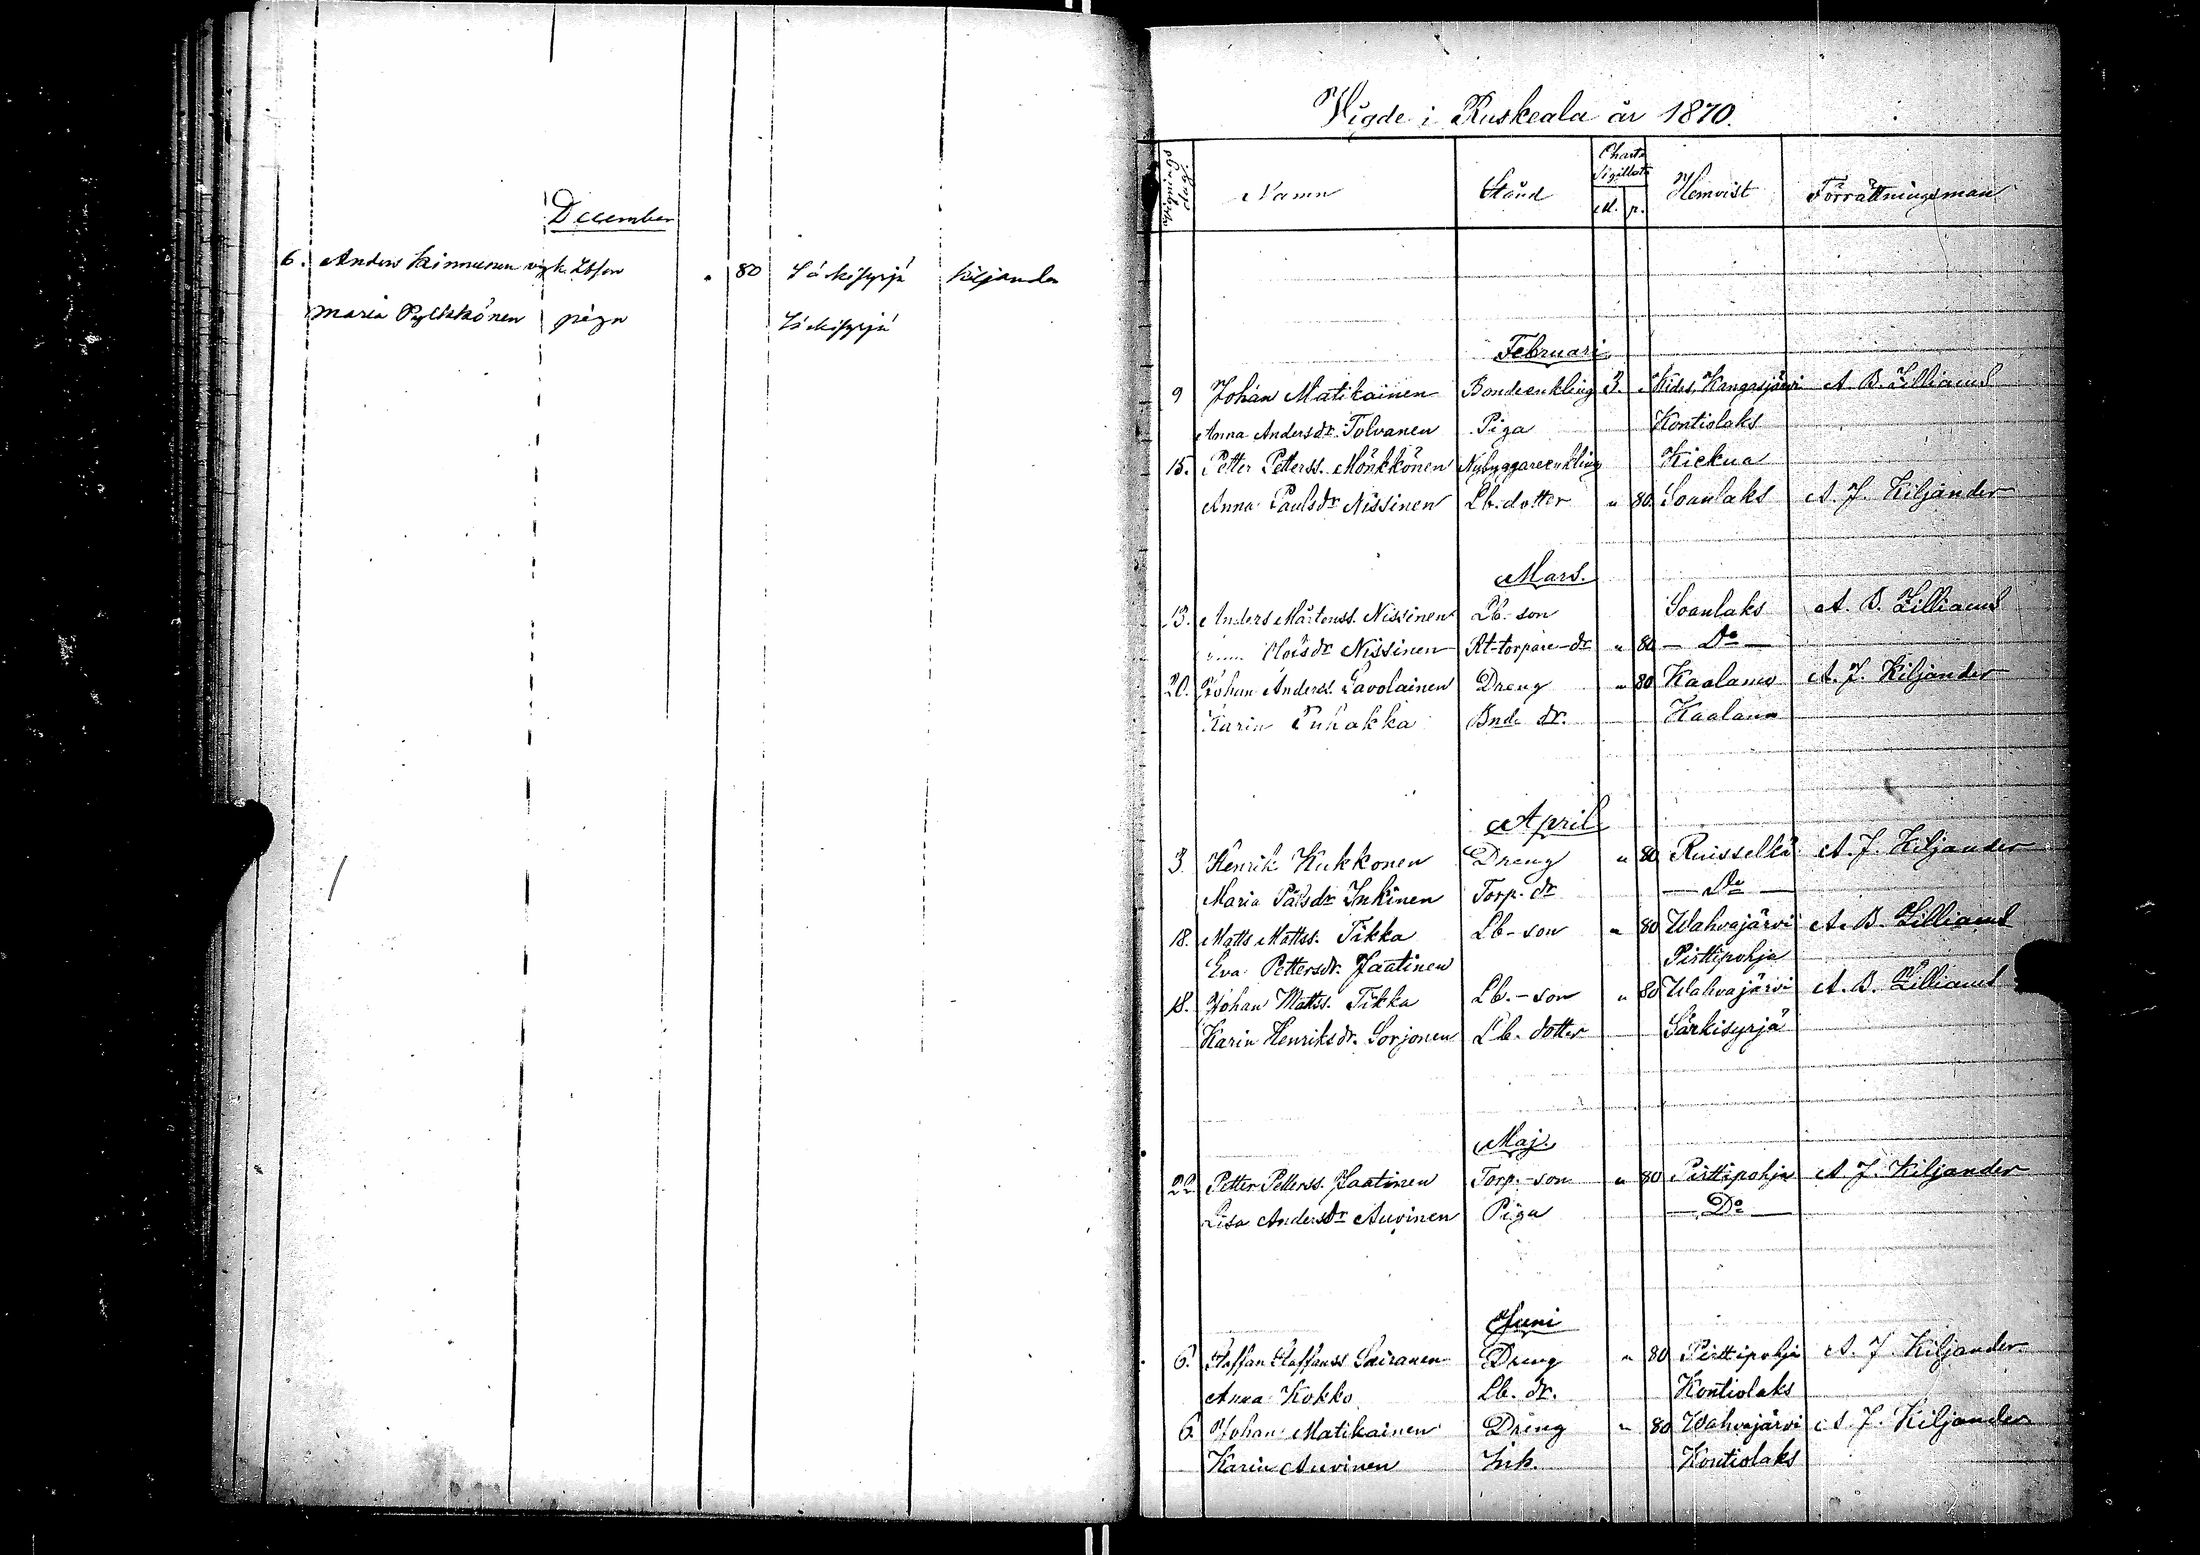 December
6. Anders Kinnunen ngk. Lbson " 80 Särkisyrjä Kiljander
Maria Pylkkönen piga Särkisyrjä
Wigde i Ruskeala år 1870.
Wignings dag. Namn Stånd Charta Sigillata Hemvist Förrättningsman
M. p.
Februari
9 Johan Matikainen Bondeenkling 3. " Kides, Kangasjärvi A. B. Lilliama
Anna Andersdr. Tolvanen Piga Kontiolaks
15. Petter Petterss. Mönkkönen Nybyggareenkling Kiekua
Anna Paulsdr Nissinen Lb. dotter " 80. Soanlaks A. J. Kiljander
Mars.
13. Anders Mårtenss. Nissinen Lb. son Soanlaks
Olofsdr Nissinen Rt-torpare-dr " 80 — Do —
20. Johan Anderss. Savolainen Dreng " 80 Kaalamo A. J. Kiljander
Karin Puhakka Bnde dr. Kaalamo
April
3. Henrik Kukkonen Dreng " 80 Ruisselkä A. J. Kiljander
Maria Pålsdr Inkinen Torp. dr — Do —
18. Matts Mattss. Tikka Lb-son " 80 Wahvajärvi
Eva Pettersdr. Jaatinen Pirttipohja
18. Johan Mattss. Tikka Lb.-son " 80 Wahvajärvi
Karin Henriksdr. Sorjonen Lb. dotter Särkisyrjä
Maj.
22 Petter Petterss. Jaatinen Torp.-son " 80 Pirttipohja A. J. Kiljander
Lisa Andersdr Auvinen Piga — Do —
Juni
6. Staffan Staffanss Sairanen Dreng " 80 Pirttipohja A. J. Kiljander
Anna Kokko Lb. dr. Kontiolaks
6. Johan Matikainen Dreng " 80 Wahvajärvi A. J. Kiljander
Karin Auvinen Ink. Kontiolaks